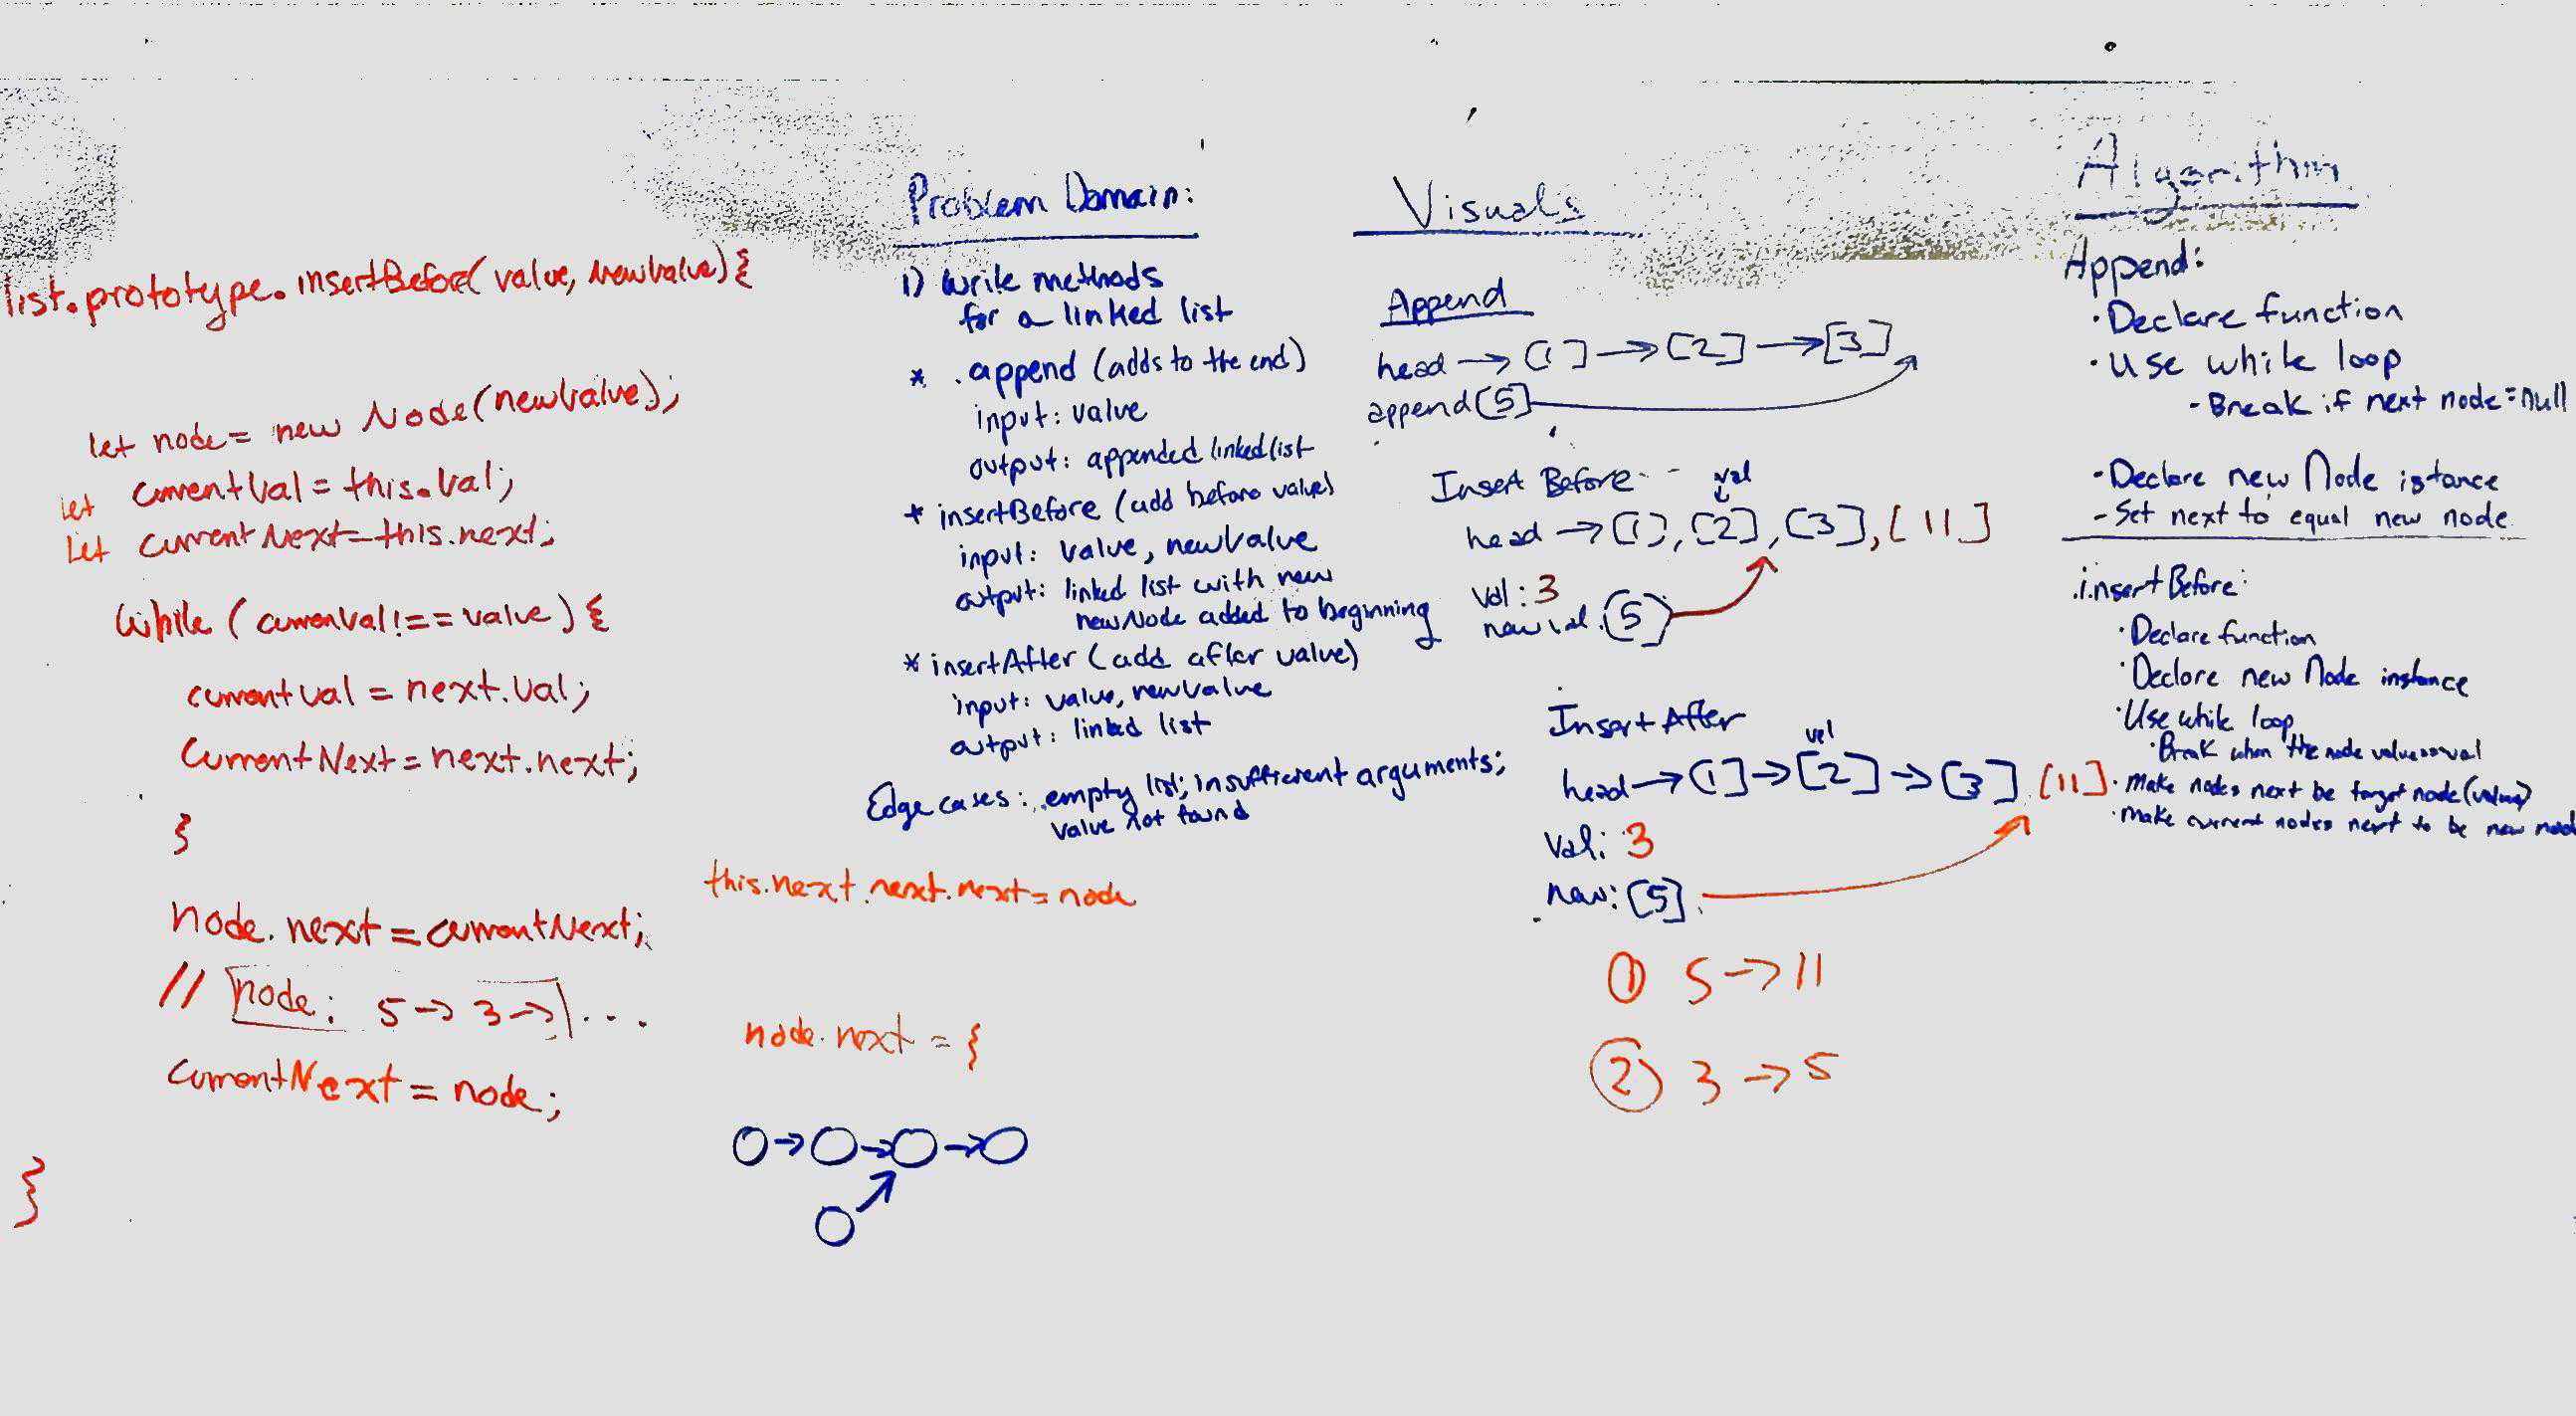 list.prototype.insertBefore(value, newValue){
let node = new Node(newValue);
let currentVal = this.val;
let currentNext = this.next;
while (currenVal !== value) {
currentval = next.val;
currentNext = next.next;
}
node.next = currentNext;
// node: 5 → 3 → ...
currentNext = node;
}
this.next.next.next = node
node.next = {
Problem Domain:
1) Write methods
for a linked list
* .append (adds to the end)
input: value
output: appended linked list
* insertBefore (add before value)
input: value, newValue
output: linked list with new
newNode added to beginning
* insertAfter (add after value)
input: value, newValue
output: linked list
Edge cases: empty list; insufficient arguments;
value not found
Visuals
Append
head → [1] → [2] → [3]
append [5]
Insert Before
val
head → [1], [2], [3], [11]
val: 3
new val. [5]
Insert After
val
head → [1] → [2] → [3] [11]
Val: 3
new: [5]
① 5 → 11
② 3 → 5
Algorithm
Append:
· Declare function
· Use while loop
- Break if next node = null
- Declare new Node istance
- Set next to equal new node
.insertBefore:
· Declare function
· Declare new Node instance
· Use while loop
· Break when the node value == val
· Make nodes next be target node (value)
· Make current nodes next to be new node